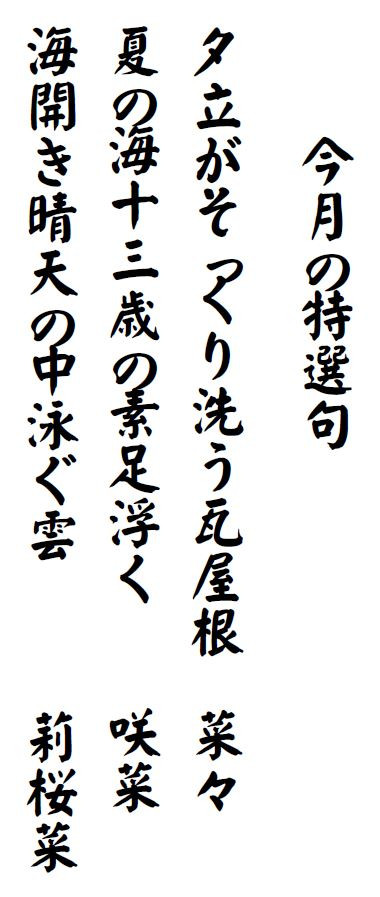 今月の特選句
夕立がそっくり洗う瓦屋根 菜々
夏の海十三歳の素足浮く 咲菜
海開き晴天の中泳ぐ雲 莉桜菜